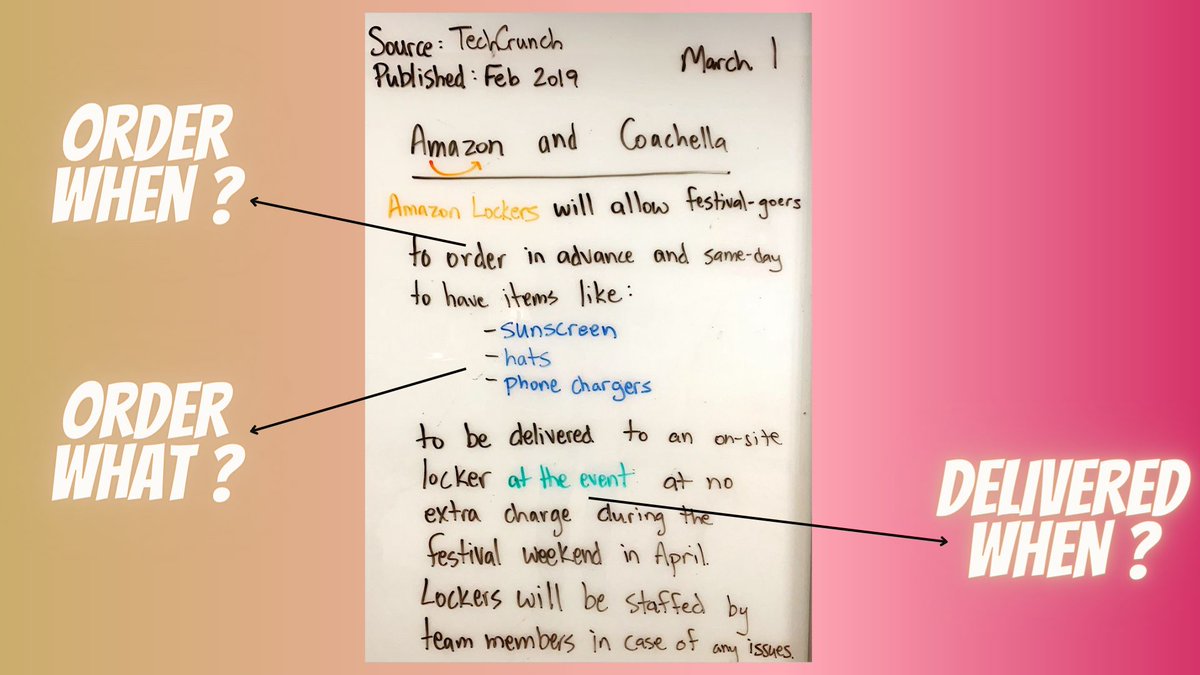 Source: TechCrunch
Published: Feb 2019
March 1
Amazon and Coachella
Amazon Lockers will allow festival-goers
to order in advance and same-day
to have items like:
- sunscreen
- hats
- phone chargers
to be delivered to an on-site
locker at the event at no
extra charge during the
festival weekend in April.
Lockers will be staffed by
team members in case of any issues.
ORDER
WHEN ?
ORDER
WHAT ?
DELIVERED
WHEN ?